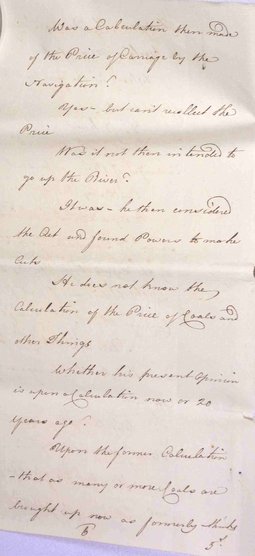 Was a Calculation then made
of the Price of Carriage by the
Navigation?
Yes – but can't recollect the
Price
Was it not then intended to
go up the River?
It was – he then considered
the Act and found Powers to make
Cuts
He does not know the
Calculation of the Price of Coals and
other Things
Whether his present Opinion
is upon a Calculation now or 20
Years ago?
Upon the former Calculation
– that as many or more Coals are
brought up now as formerly – thinks
B